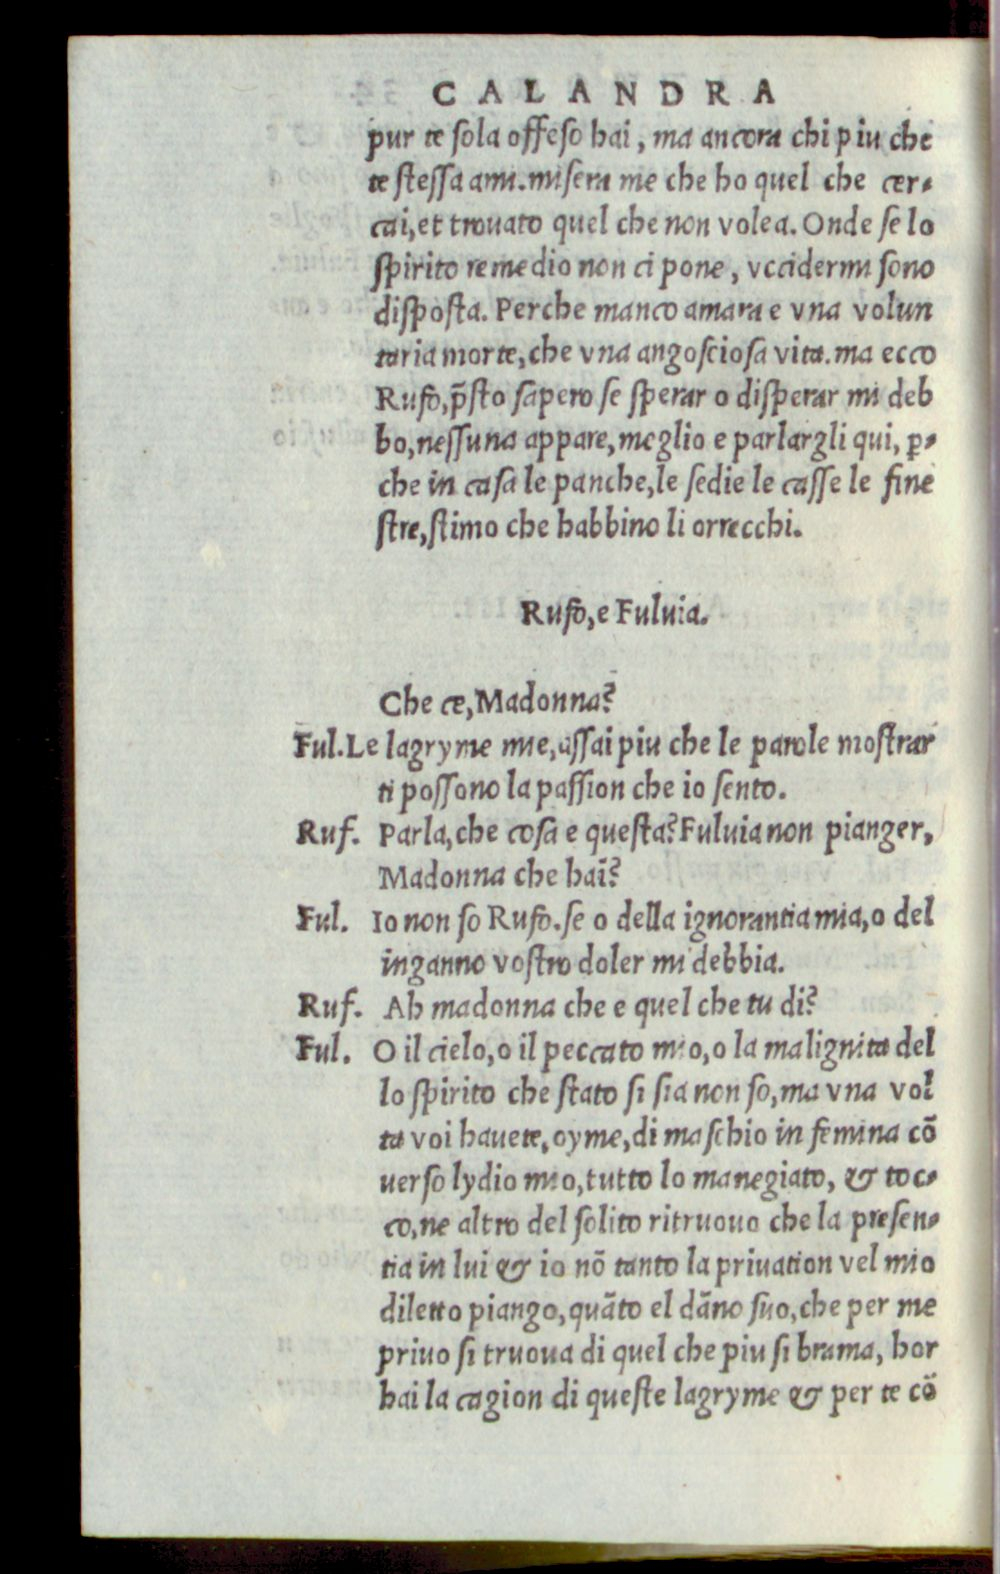 CALANDRA
pur te ſola offeſo hai, ma ancora chi piu che
te ſteſſa ami. miſera me che ho quel che cer-
cai, et trouato quel che non volea. Onde ſe lo
ſpirito remedio non ci pone, vccidermi ſono
diſpoſta. Perche manco amara e vna volun
taria morte, che vna angoſcioſa vita. ma ecco
Rufo, p̄ſto ſapero ſe ſperar o diſperar mi deb
bo, neſſuna appare, meglio e parlargli qui, ꝑ-
che in caſa le panche, le ſedie le caſſe le fine
ſtre, ſtimo che habbino li orrecchi.
Rufo, e Fuluia.
Che ce, Madonna?
Ful. Le lagryme mie, aſſai piu che le parole moſtrar
ti poſſono la paſſion che io ſento.
Ruf. Parla, che coſa e queſta? Fuluia non pianger,
Madonna che hai?
Ful. Io non ſo Rufo. ſe o della ignorantia mia, o del
inganno voſtro doler mi debbia.
Ruf. Ah madonna che e quel che tu di?
Ful. O il cielo, o il peccato mio, o la malignita del
lo ſpirito che ſtato ſi ſia non ſo, ma vna vol
ta voi hauete, oyme, di maſchio in femina cō
uerſo lydio mio, tutto lo manegiato, & toc-
co, ne altro del ſolito ritruouo che la preſen-
tia in lui & io nō tanto la priuation vel mio
diletto piango, quāto el dāno ſuo, che per me
priuo ſi truoua di quel che piu ſi brama, hor
hai la cagion di queſte lagryme & per te cō